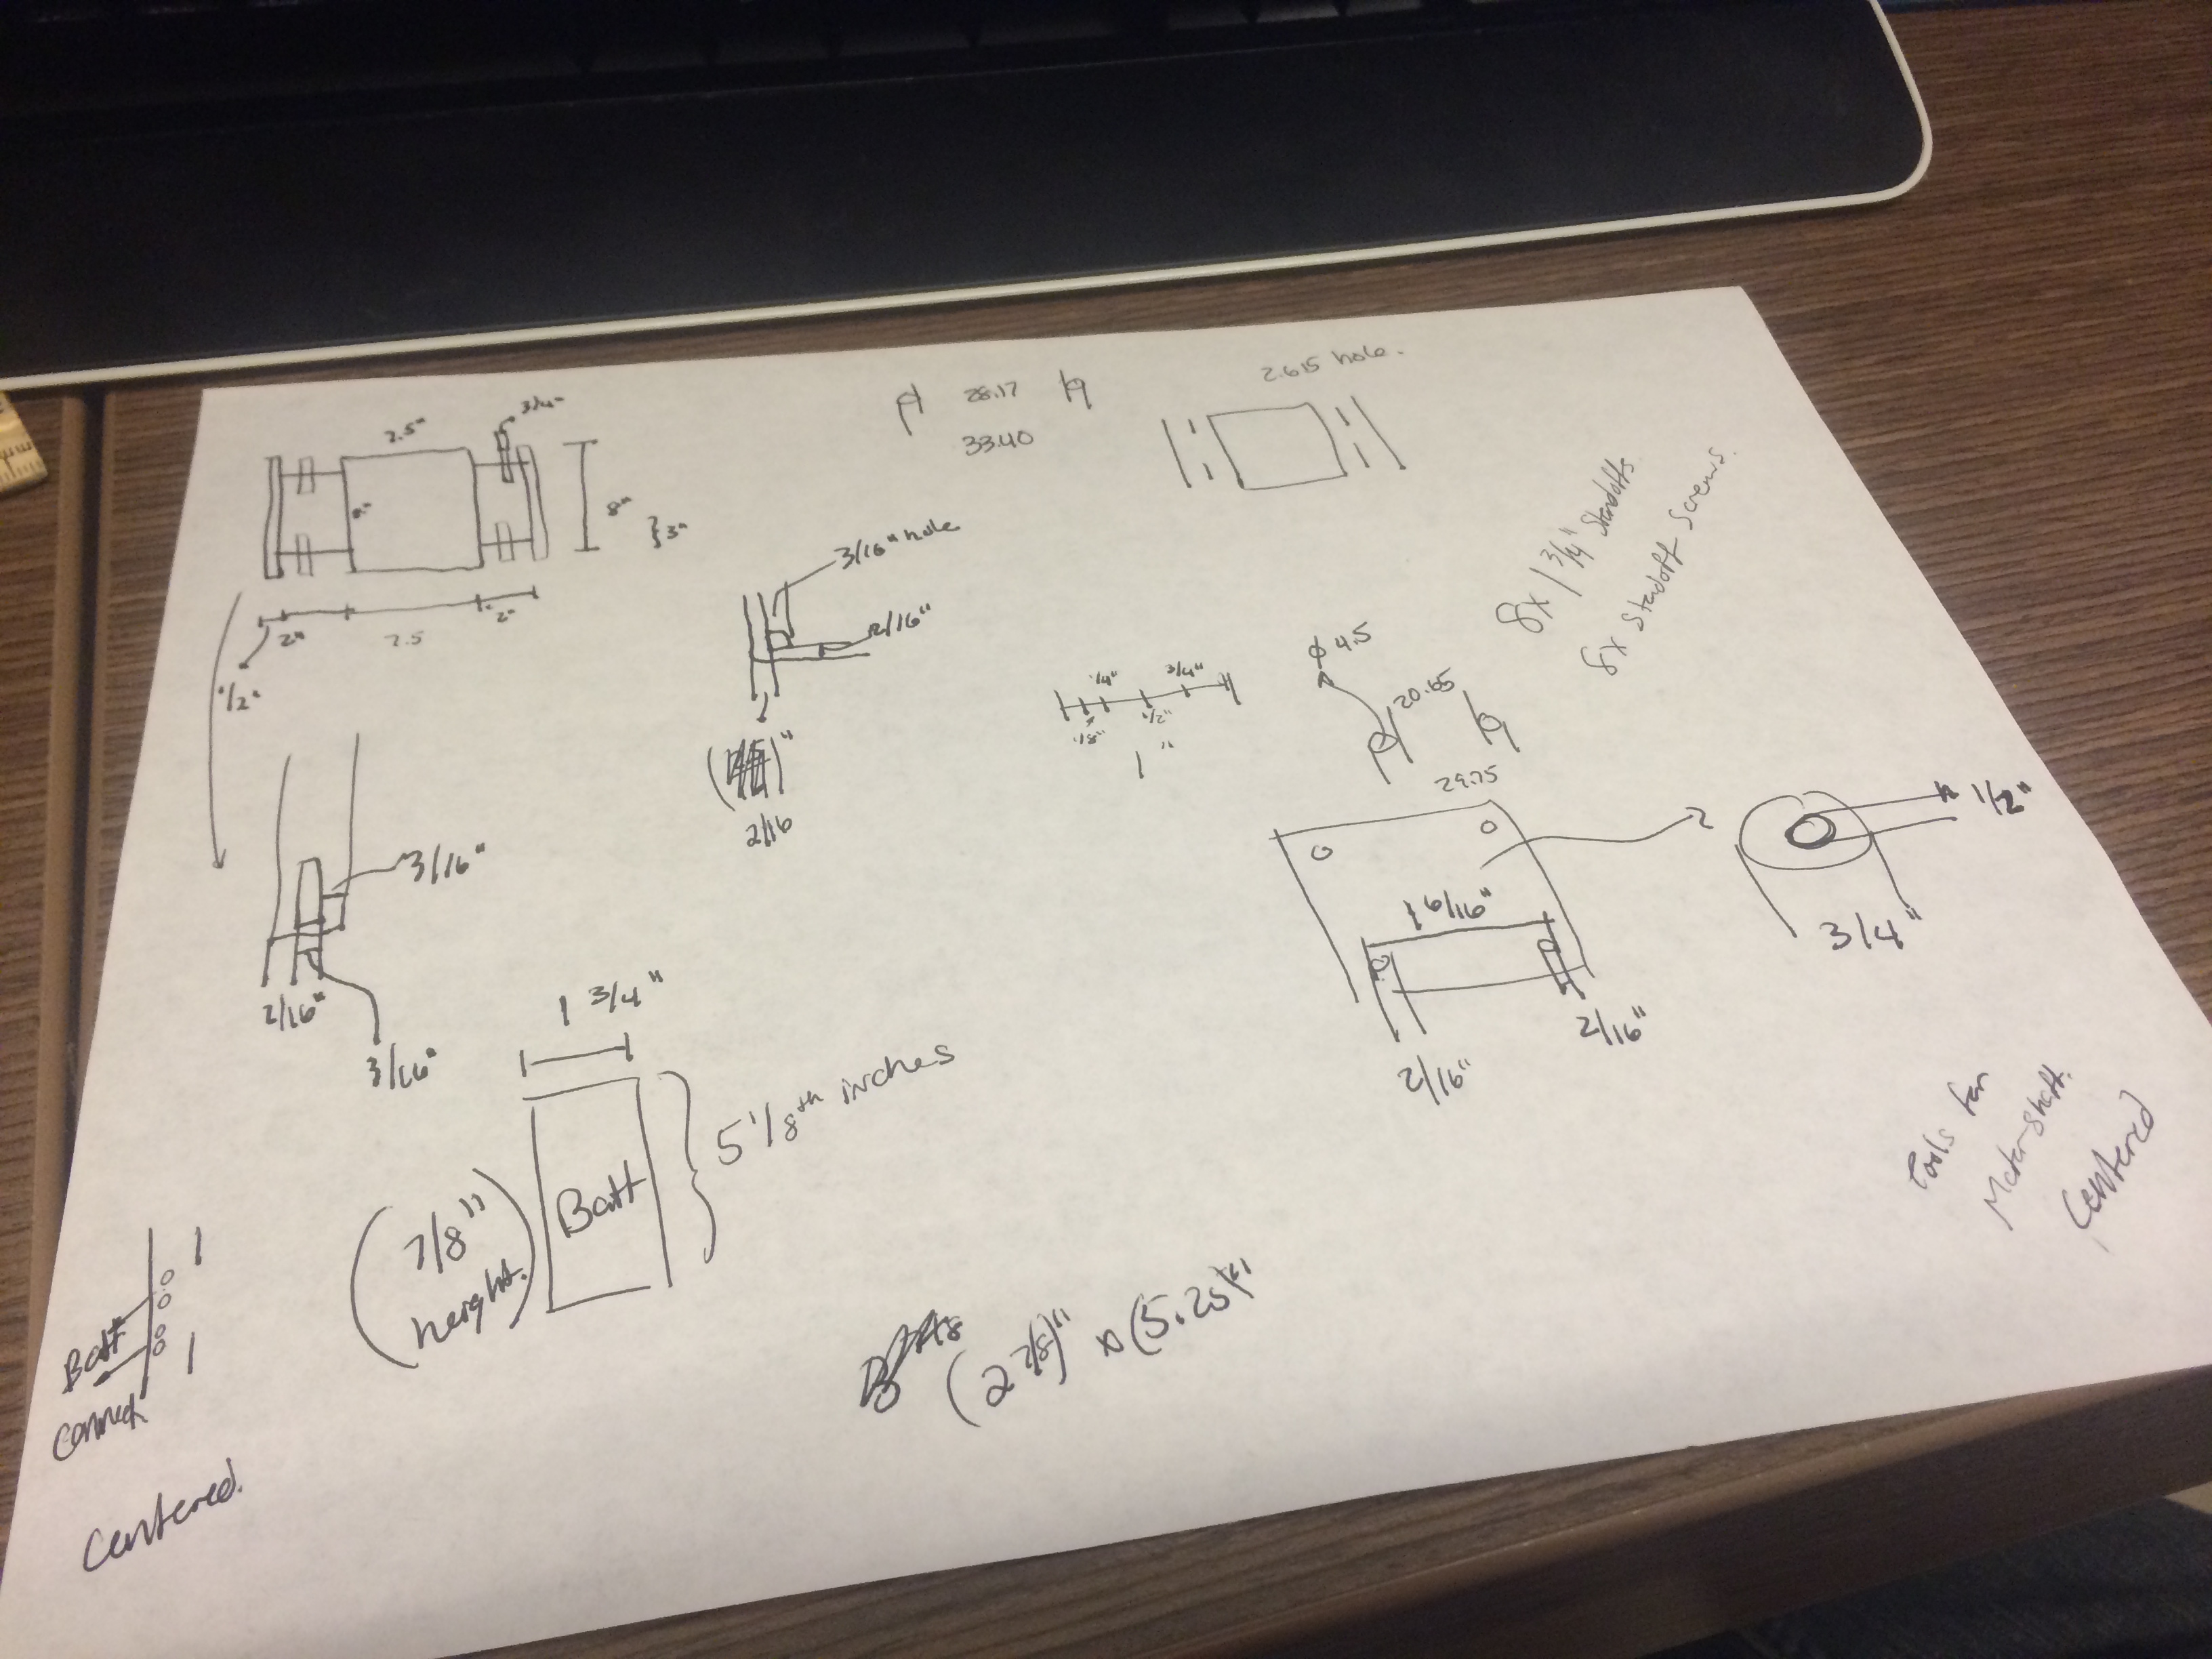 28.17
33.40
2.615 hole.
3/4"
2.5"
8"
8"
}3"
2"
2.5
2"
1/2"
3/16" hole
2/16"
2/16
8x 1 3/4" Standoffs
8x Standoff Screws.
1/4"
3/4"
1/8"
1/2"
1"
ø 4.5
20.65
29.75
1/2"
3/4"
1 6/16"
2/16"
2/16"
3/16"
2/16"
3/16"
1 3/4"
5 1/8th inches
Batt
(7/8"
height.)
Batt
Connect
Centered.
(2 7/8)" x (5.25)"
Tools for
Motor shaft.
Centered